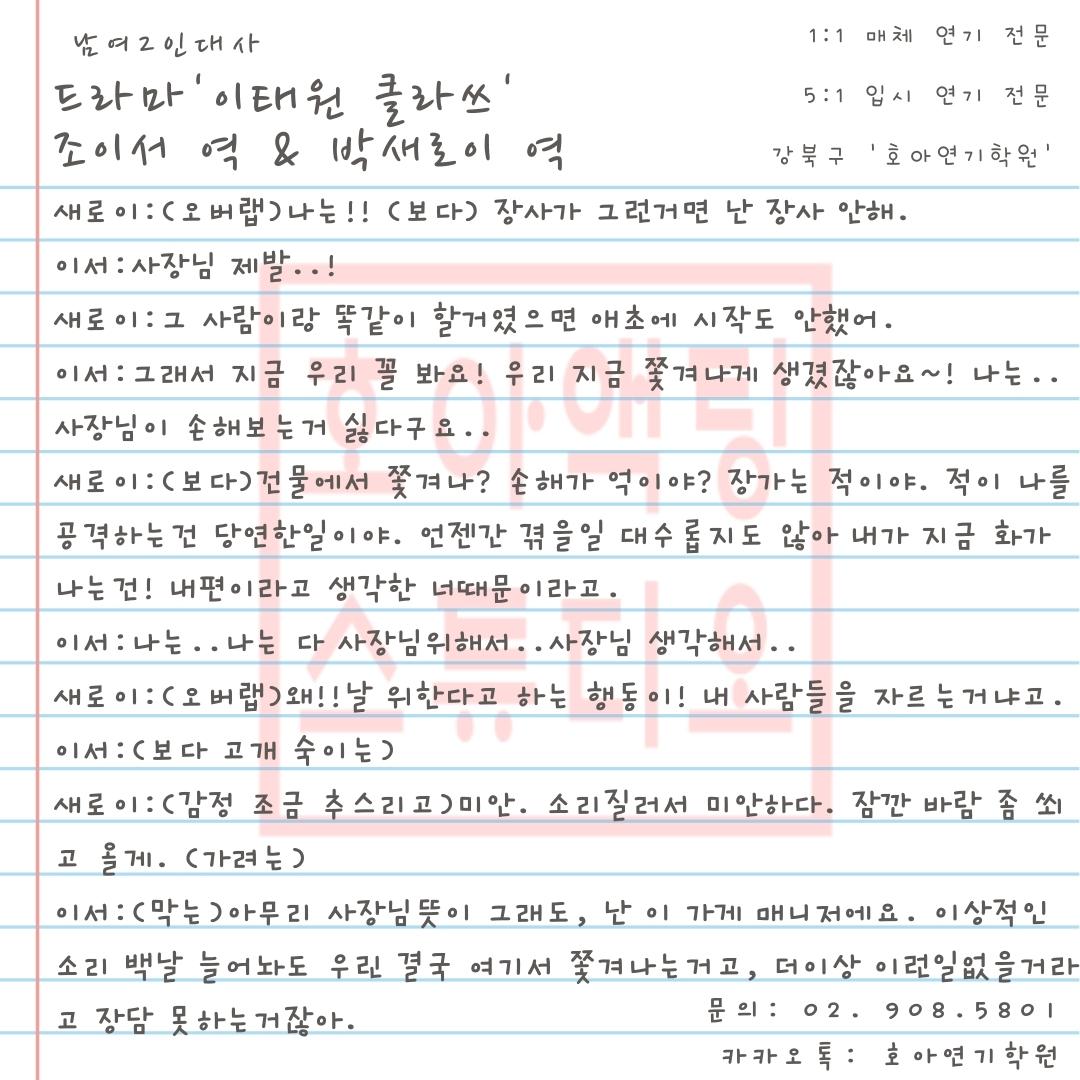 남여2인대사
드라마'이태원 클라쓰'
조이서 역 & 박새로이 역
1:1 매체 연기 전문
5:1 입시 연기 전문
강북구 '호아연기학원'
새로이:(오버랩)나는!! (보다) 장사가 그런거면 난 장사 안해.
이서:사장님 제발..!
새로이:그 사람이랑 똑같이 할거였으면 애초에 시작도 안했어.
이서:그래서 지금 우리 꼴 봐요! 우리 지금 쫓겨나게 생겼잖아요~! 나는..
사장님이 손해보는거 싫다구요..
새로이:(보다)건물에서 쫓겨나? 손해가 억이야? 장가는 적이야. 적이 나를
공격하는건 당연한일이야. 언젠간 겪을일 대수롭지도 않아 내가 지금 화가
나는건! 내편이라고 생각한 너때문이라고.
이서:나는..나는 다 사장님위해서..사장님 생각해서..
새로이:(오버랩)왜!!날 위한다고 하는 행동이! 내 사람들을 자르는거냐고.
이서:(보다 고개 숙이는)
새로이:(감정 조금 추스리고)미안. 소리질러서 미안하다. 잠깐 바람 좀 쐬
고 올게. (가려는)
이서:(막는)아무리 사장님뜻이 그래도, 난 이 가게 매니저에요. 이상적인
소리 백날 늘어놔도 우린 결국 여기서 쫓겨나는거고, 더이상 이런일없을거라
고 장담 못하는거잖아.
문의: 02. 908.5801
카카오톡: 호아연기학원
호아액팅
스튜디오